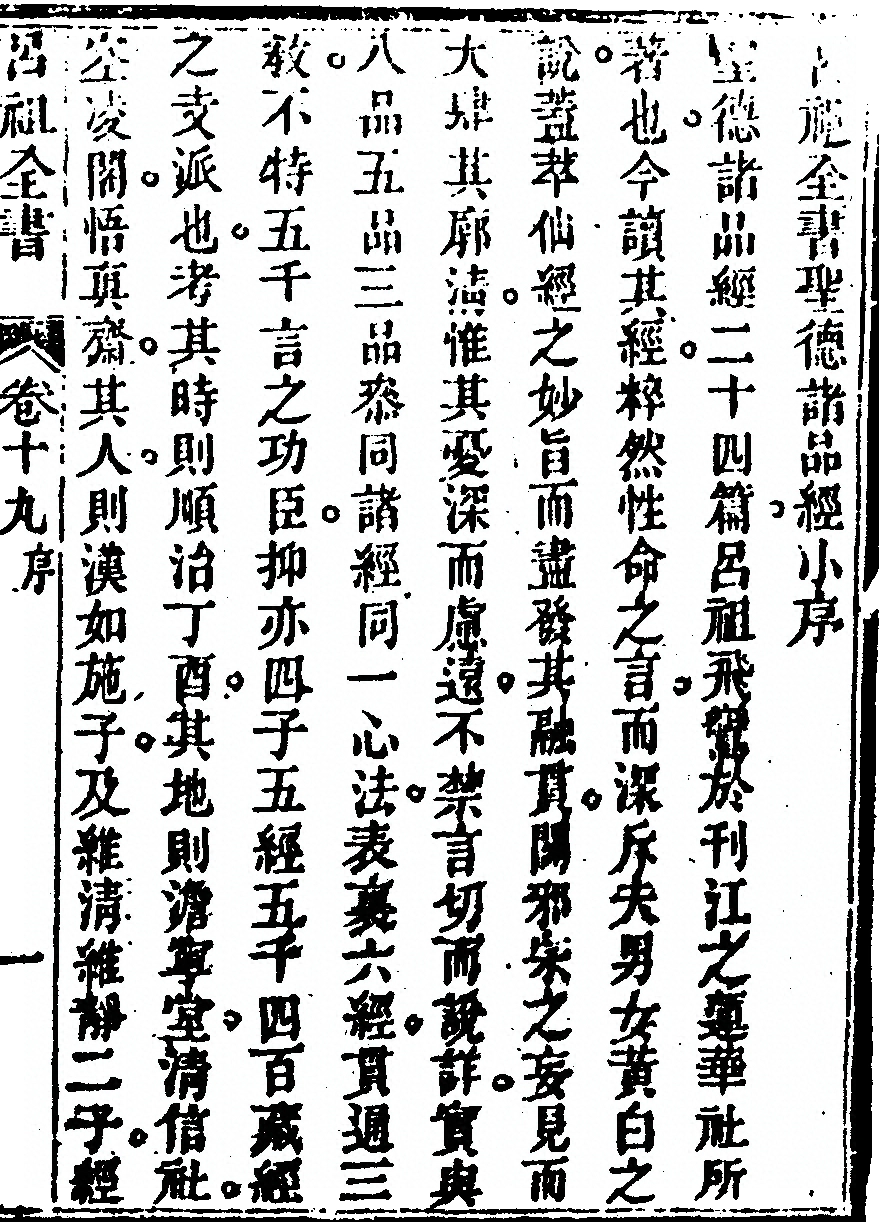 呂祖全書聖德諸品經小序
聖德諸品經二十四篇。呂祖飛鸞於刊江之蓮華社所
著也。今讀其經。粹然性命之言。而深斥夫男女黃白之
說。蓋萃仙經之妙旨而盡發其融貫。闢邪宗之妄見而
大肆其廓清。惟其憂深而慮遠。不禁言切而說詳。實與
八品五品三品叅同諸經同一心法。表裏六經。貫通三
敎。不特五千言之功臣。抑亦四子五經五千四百藏經
之支派也。考其時則順治丁酉。其地則澹寧堂。清信社。
空凌閣。悟真齋。其人。則漢如施子。及維清維靜二子。經
呂祖全書 卷十九 序 一